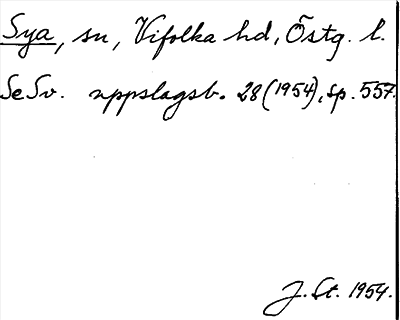 Sya, sn, Vifolka hd, Östg. l.
Se Sv. uppslagsb. 28 (1954), sp. 557.
J. St. 1954.